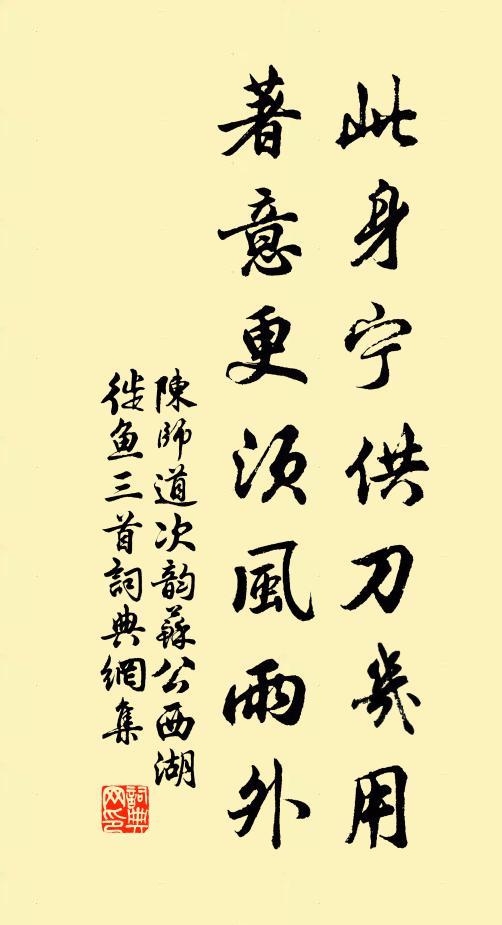 此身宁供刀几用
著意更须風雨外
陳師道次韵蘇公西湖
徙鱼三首詞典網集
詞典網印